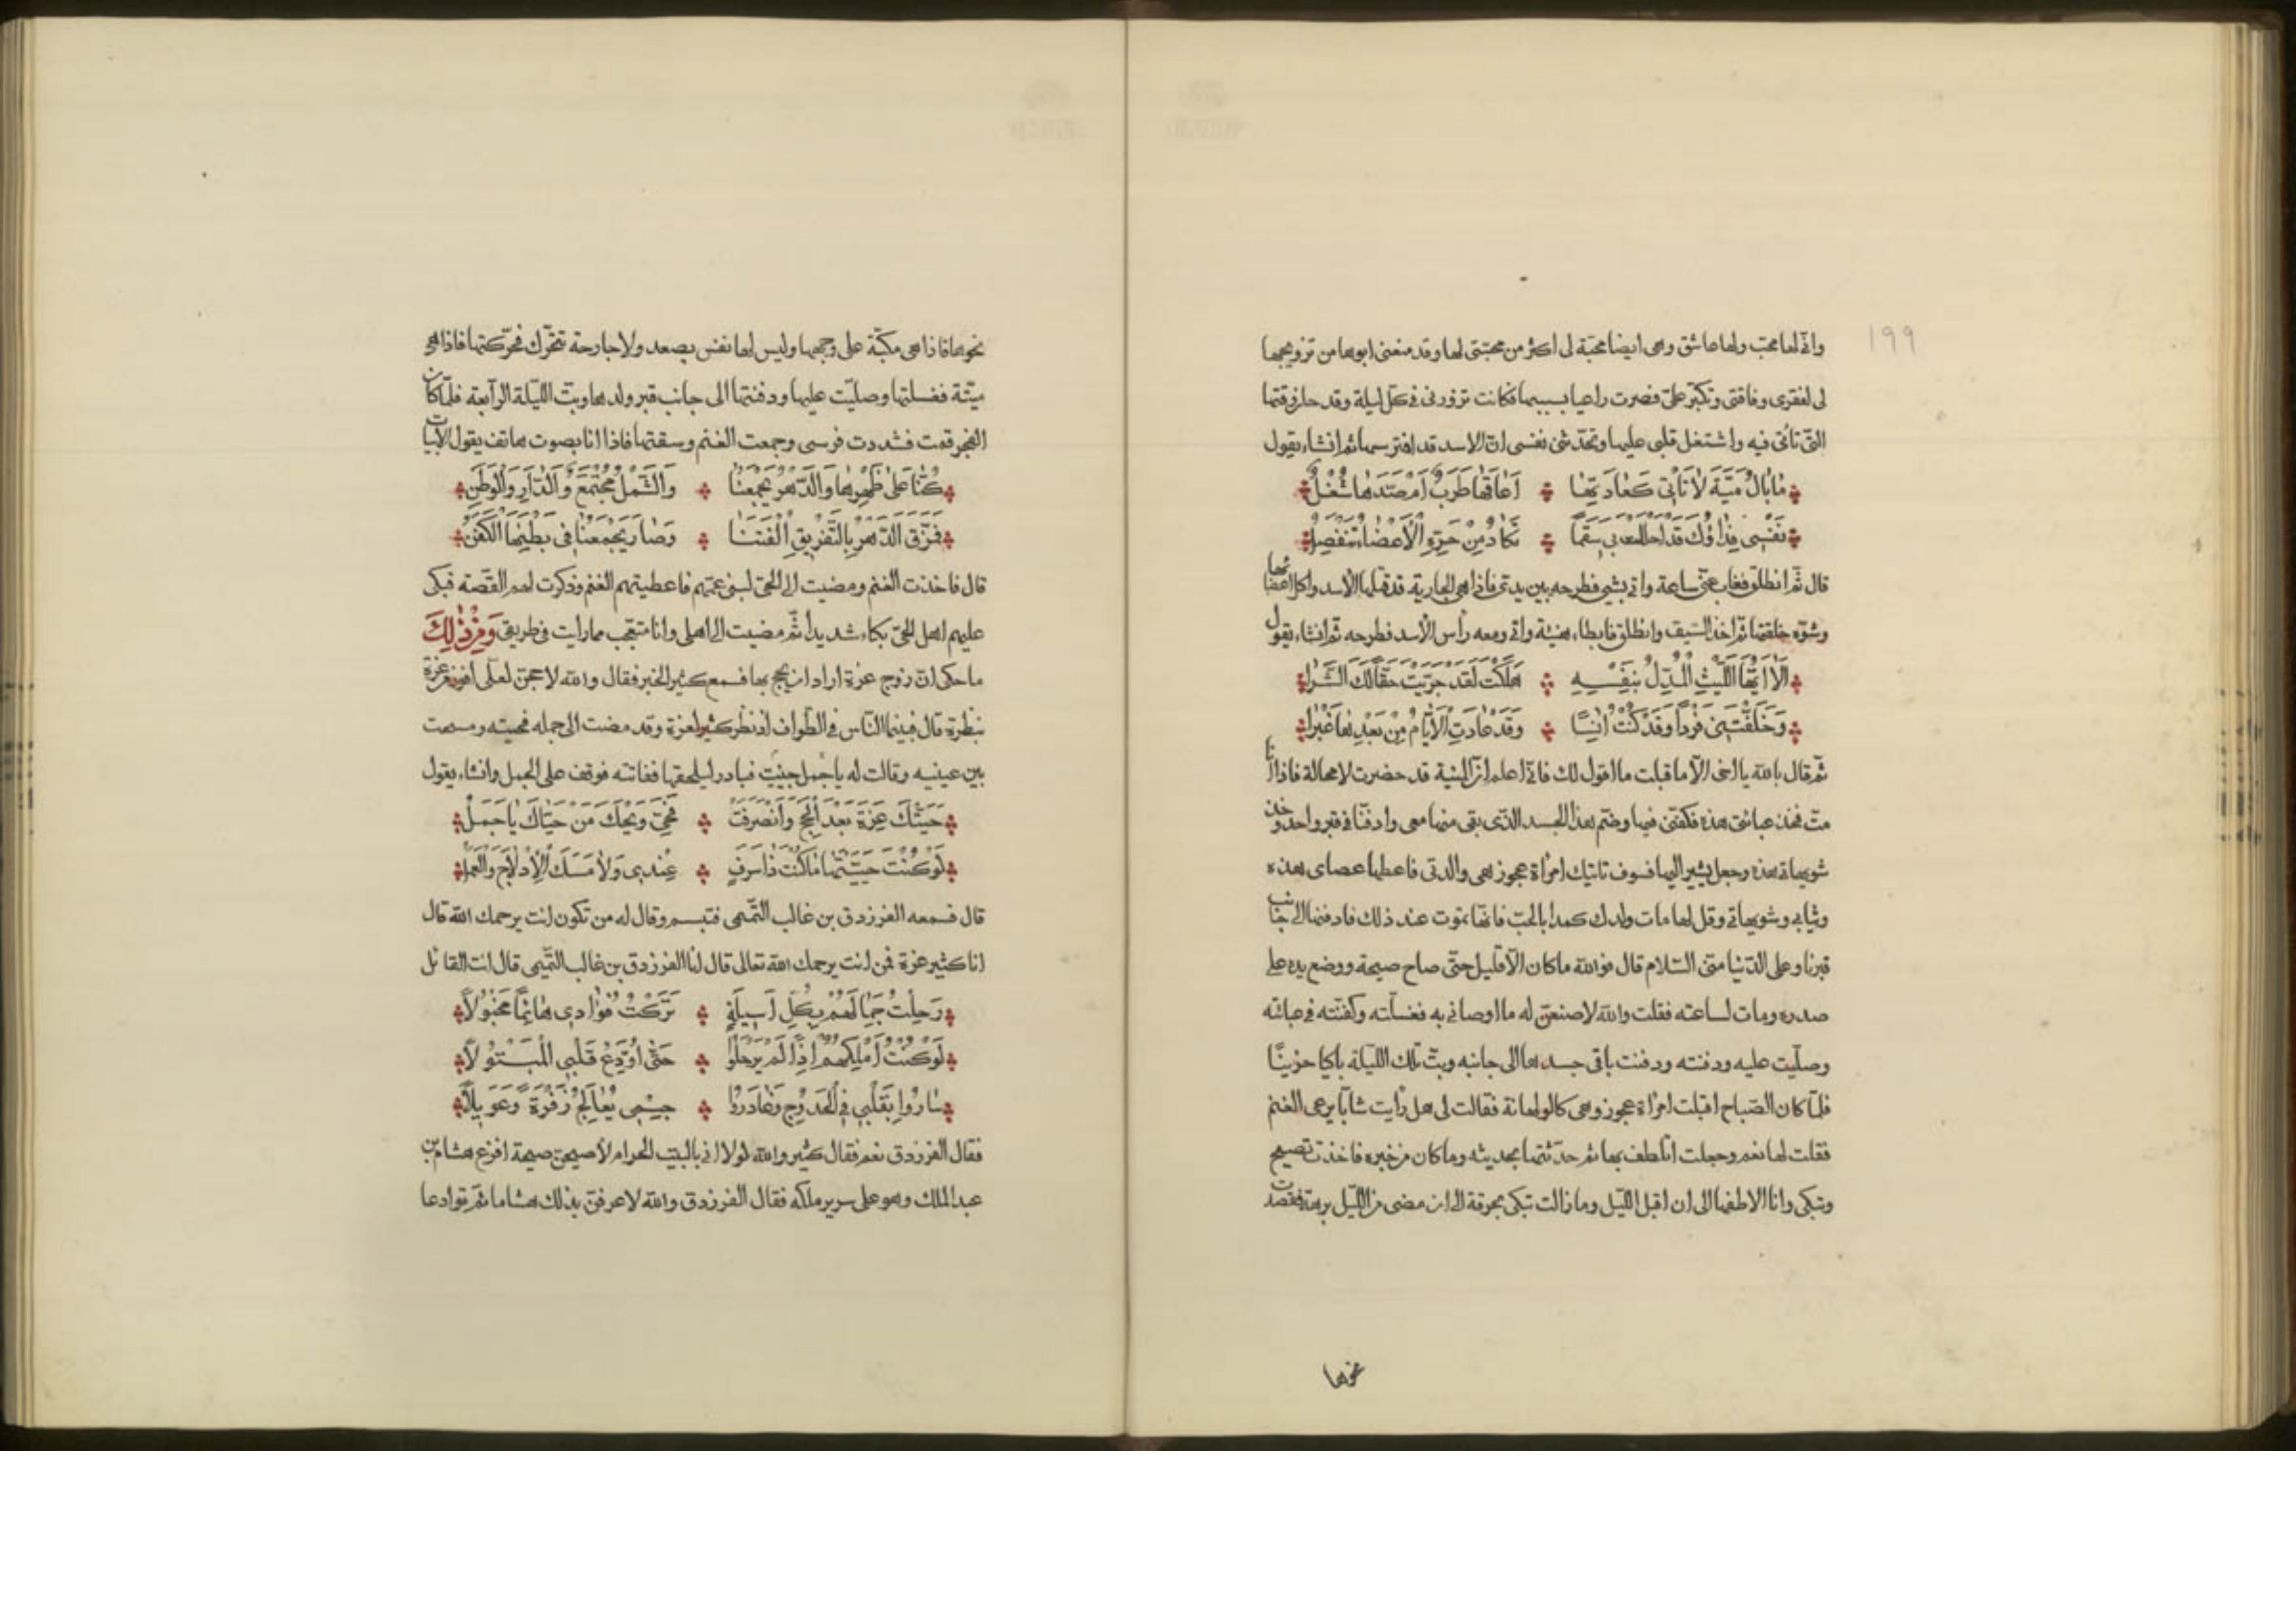 ١٩٩
وانّى لها محبّ ولها عاشق وهى ايضا محبّة لى اكثر من محبّتى لها وقد منعنى ابوها من تزويجها
لى لفقرى وفاقتى وتكبّر علىّ فصرت راعيا بسببها فكانت تزورنى فى كلّ ليلة وقد حان وقتها
الّتى تأتى فيه واشتغل قلبى عليها وتحدّثنى نفسى انّ الاسد قد افترسها ثم انشاء يقول
مَا بَالُ مَيَّةَ لَا تَأْتِى كَعَادَتِهَا ۞ أَعَاقَهَا طَرَبٌ أَمْ صَدَّهَا شُغْلُ
نَفْسِى فِدَاؤُكِ قَدْ احللت بى سَقَمًا ۞ تَكَادُ مِنْ حَرِّهِ الْأَعْضَاءُ تَنْفَصِلُ
قال ثمّ انطلق فغاب عنّى ساعة واتى بشىء فطرحه بين يدىّ فاذا هى الجارية قد قتلها الأسد واكل اعضائها
وشوّه خلقتها ثمّ اخذ السّيف وانطلق فابطاء هنيئة واتى ومعه رأس الأسد فطرحه ثمّ انشاء يقول
أَلَا أَيُّهَا اللَّيْثُ الْمُدِلُّ بِنَفْسِهِ ۞ هَلَكْتَ لَقَدْ جَرَّيْتَ حَقًّا لَكَ الشَّرَا
وَخَلَّفْتَنِى فَرْدًا وَقَدْ كُنْتُ آنِسًا ۞ وَقَدْ عَادَتِ الْأَيَّامُ مِنْ بَعْدِهَا غَبْرَا
ثمّ قال بالله يا اخى الّا ما قبلت ما اقول لك فانّى اعلم انّ المنيّة قد حضرت لا محالة فاذا انا
متّ فخذ عبائتى هذه فكفّنّى فيها وضمّ هذا الجسد الّذى بقى منها معى وادفنّا فى قبر واحد وخذ
شويهاتى هذه وجعل يشير اليها فسوف تاتيك امرأة عجوز هى والدتى فاعطها عصاى هذه
وثيابى وشويهاتى وقل لها مات ولدك كمدا بالحبّ فانّها تموت عند ذلك فادفنها الى جانب
قبرنا وعلى الدّنيا منّى السّلام قال فوالله ما كان الّا قليل حتّى صاح صيحة ووضع يده على
صدره ومات لساعته فقلت والله لاصنعنّ له ما اوصانى به فغسلته وكفّنته فى عبائته
وصلّيت عليه ودفنته ودفنت باقى جسدها الى جانبه وبتّ تلك اللّيلة باكيا حزينًا
فلمّا كان الصّباح اقبلت امرأة عجوز وهى كالولهانة فقالت لى هل رأيت شابّا يرعى الغنم
فقلت لها نعم وجعلت اتلطف بها ثم حدّثتها بحديثه وما كان من خبره فاخذت تصيح
وتبكى وانا الاطفها الى ان اقبل اللّيل وما زالت تبكى بحرقة الى ان مضى من اللّيل برهة فقصدت
نحوها
نحوها فاذا هى مكبّة على وجهها وليس لها نفس يصعد ولا جارحة تتحرّك فحرّكتها فاذا هى
ميّتة فغسلتها وصلّيت عليها ودفنتها الى جانب قبر ولدها وبتّ اللّيلة الرّابعة فلمّا كان
الفجر قمت فشددت فرسى وجمعت الغنم وسقتها فاذا انا بصوت هاتف يقول الابيات
كُنَّا عَلَى ظَهْرِهَا وَالدَّهْرُ يَجْمَعُنَا ۞ وَالشَّمْلُ مُجْتَمِعٌ وَالدَّارُ وَالْوَطَنُ
فَمَزَّقَ الدَّهْرُ بِالتَّفْرِيقِ أُلْفَتَنَا ۞ وَصَارَ يَجْمَعُنَا فِى بَطْنِهَا الْكَفَنُ
قال فاخذت الغنم ومضيت الى الحىّ لبنى عمّهم فاعطيتهم الغنم وذكرت لهم القصّة فبكى
عليهم اهل الحىّ بكاء شديدا ثمّ مضيت الى اهلى وانا متعجّب مما رأيت فى طريقى وَمِنْ ذَلِكَ
ما حكى انّ زوج عزة اراد ان يحجّ بها فسمع كثير الخبر فقال والله لاحجّنّ لعلّى افوز من عزة
بنظرة قال فبينما النّاس فى الطّواف اذ نظر كثير لعزة وقد مضت الى جمله فحيّته ومسحت
بين عينيه وقالت له يا جمل حيّيت فبادر ليلحقها ففاتته فوقف على الجمل وانشاء يقول
حَيَّتْكَ عَزَّةُ بَعْدَ الْحَجِّ وَانْصَرَفَتْ ۞ فَحَىِّ وَيْحَكَ مَنْ حَيَّاكَ يَا جَمَلُ
لَوْ كُنْتَ حَيَّيْتَهَا مَا كُنْتَ ذَا سَرَفٍ ۞ عِنْدِى وَلَا مَسَّكَ الْإِدْلَاجُ وَالْعَمَلُ
قال فسمعه الفرزدق بن غالب التّميمى فتبسم وقال له من تكون انت يرحمك الله قال
انا كثير عزة فمن انت يرحمك الله تعالى قال انا الفرزدق بن غالب التّميمى قال انت القائل
رَحَلَتْ جِمَالُهُمْ بِكُلِّ أَسِيلَةٍ ۞ تَرَكَتْ فُؤَادِى هَائِمًا مَخْبُولًا
لَوْ كُنْتُ أَمْلِكُهُمْ إِذًا لَمْ يَرْحَلُوا ۞ حَتَّى أُوَدِّعَ قَلْبِى الْمَبْتُولَا
سَارُوا بِقَلْبِى فِى الْحُدُوجِ وَغَادَرُوا ۞ جِسْمِى يُعَالِجُ زَفْرَةً وَعَوِيلًا
فقال الفرزدق نعم فقال كثير والله لولا انّى بالبيت الحرام لأصيحنّ صيحة افزع هشام بن
عبد الملك وهو على سرير ملكه فقال الفرزدق والله لاعرفنّ بذلك هشاما ثمّ توادعا